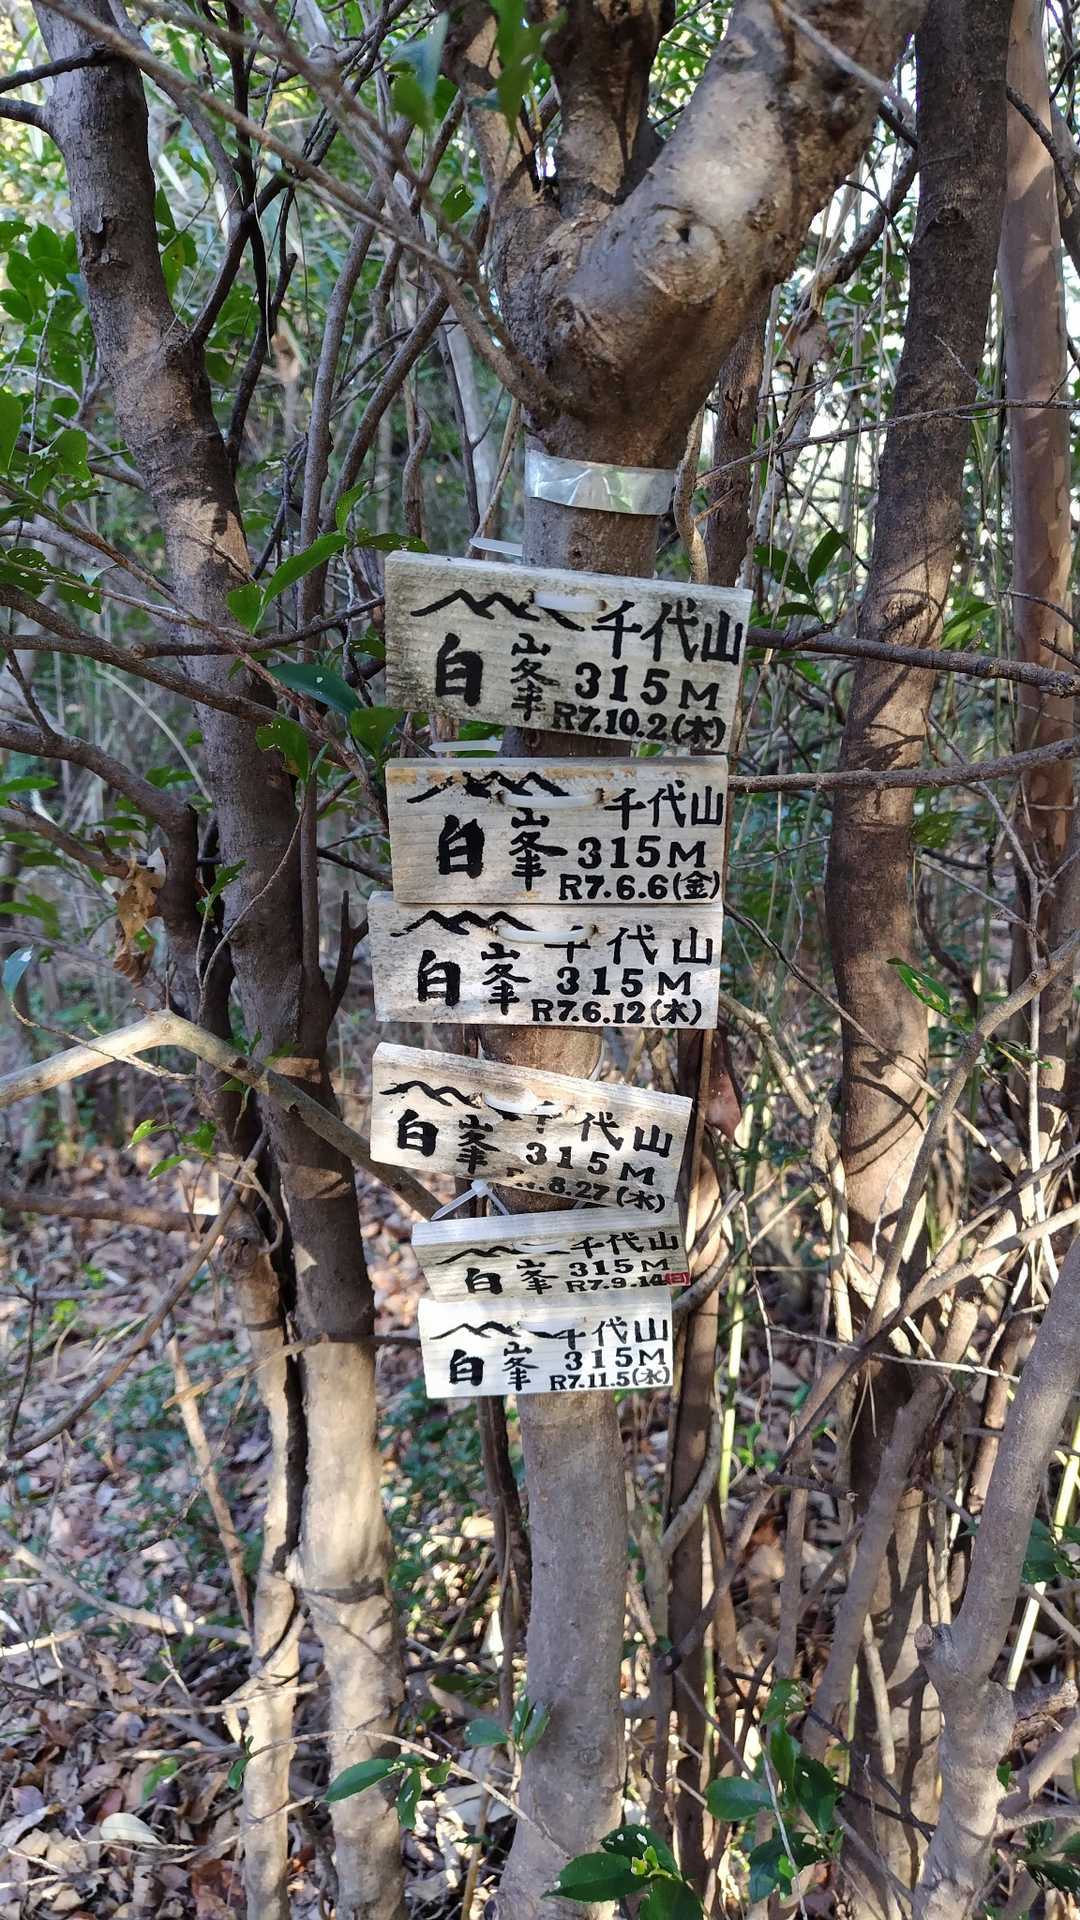 千代山
白峯 315M
R7.10.2(木)
千代山
白峯 315M
R7.6.6(金)
千代山
白峯 315M
R7.6.12(木)
千代山
白峯 315M
8.27(水)
千代山
白峯 315M
R7.9.14(日)
千代山
白峯 315M
R7.11.5(水)